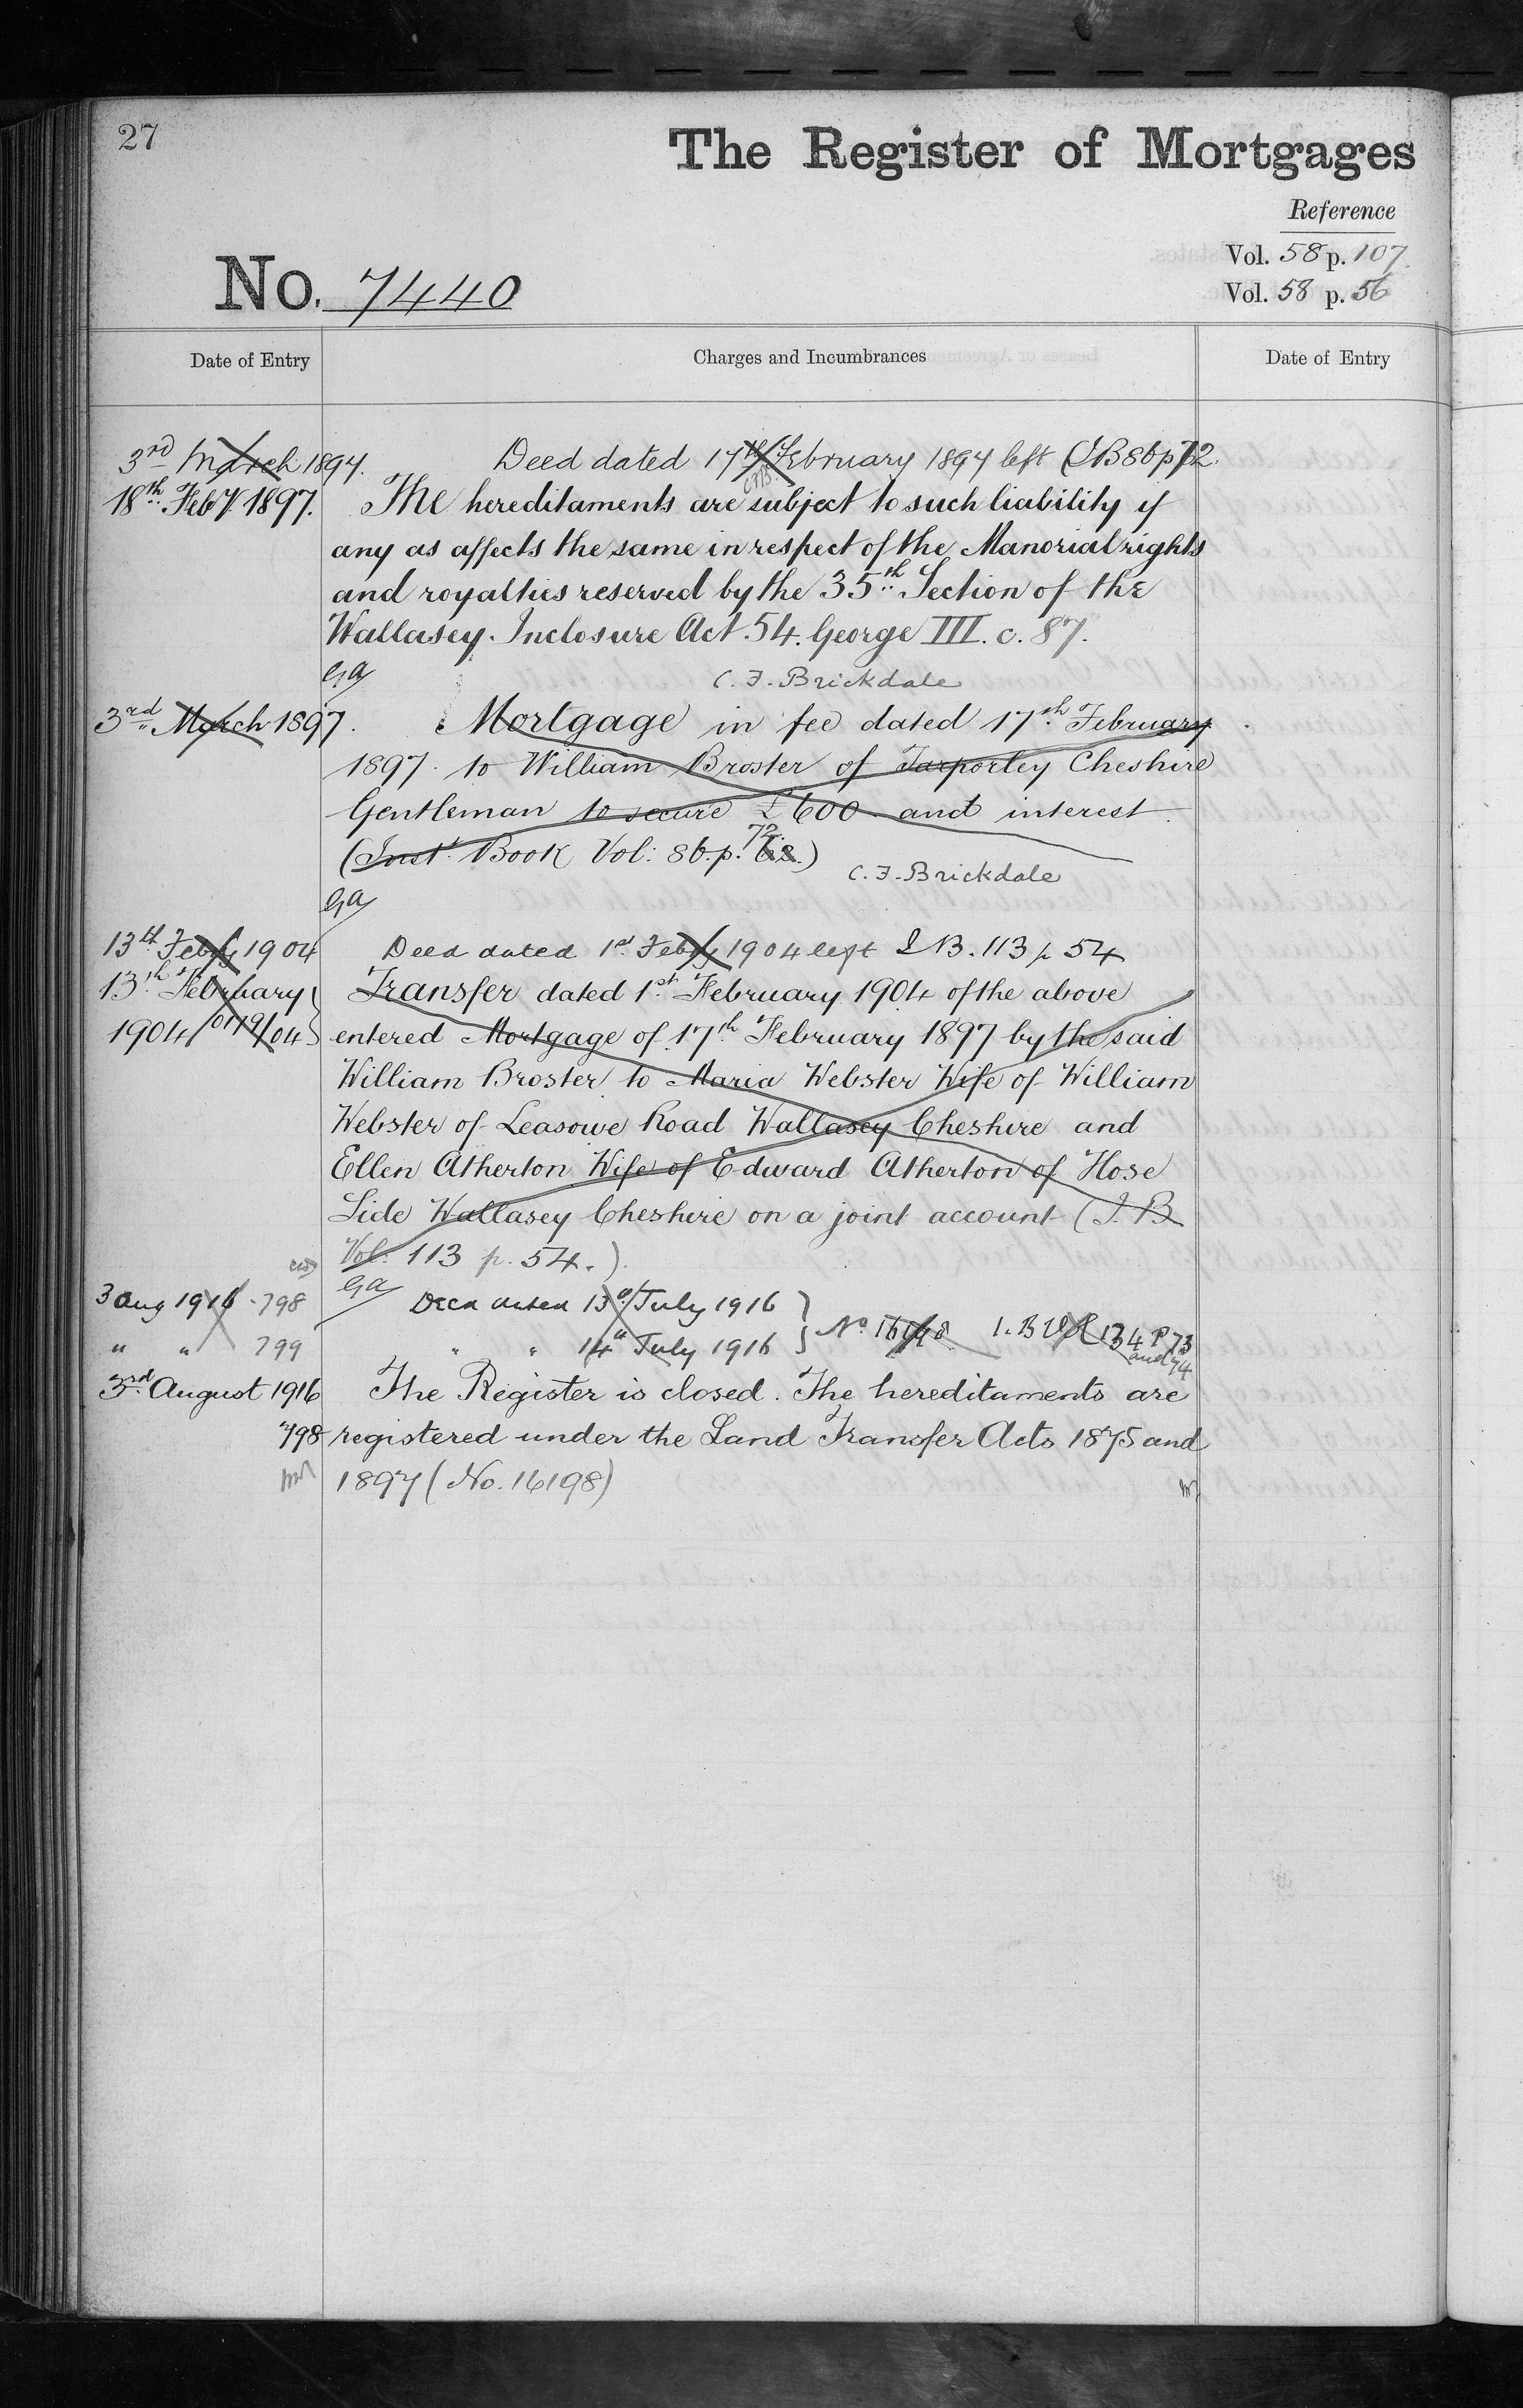 27
The Register of Mortgages
Reference
Vol. 58 p. 107.
Vol. 58 p. 56
No. 7440
Date of Entry
Charges and Incumbrances
Date of Entry
3rd March 1897.
Deed dated 17th February 1897 left (I B 86 p 72.
18th Feby. 1897.
The hereditaments are subject to such liability if
any as affects the same in respect of the Manorial rights
and royalties reserved by the 35th Section of the
Wallasey. Inclosure Act. 54. George III. c. 87.
GA
C. F. Brickdale
3rd March 1897.
Mortgage in fee dated 17th February
1897. to William Broster of Tarporley Cheshire
Gentleman to secure £600. and interest.
(Inst. Book Vol: 86. p. 72.)
C. F. Brickdale
GA
13th Feby 1904
Deed dated 1st Feby 1904 left I B. 113 p 54
13th February
1904
Transfer dated 1st February 1904 of the above
entered Mortgage of 17th February 1897 by the said
William Broster to Maria Webster Wife of William
Webster of Leasowe Road Wallasey Cheshire and
Ellen Atherton Wife of Edward Atherton of Hose
Side Wallasey Cheshire on a joint account (I. B
Vol. 113 p. 54.).
GA
3 Aug 1916 - 798
Deed dated 13th July 1916
" " 799
" " 14th July 1916
No 16198 I. B Vol 134 P 73
and 74
3rd August 1916
798
The Register is closed. The hereditaments are
registered under the Land Transfer Acts 1875 and
1897 (No. 16198)